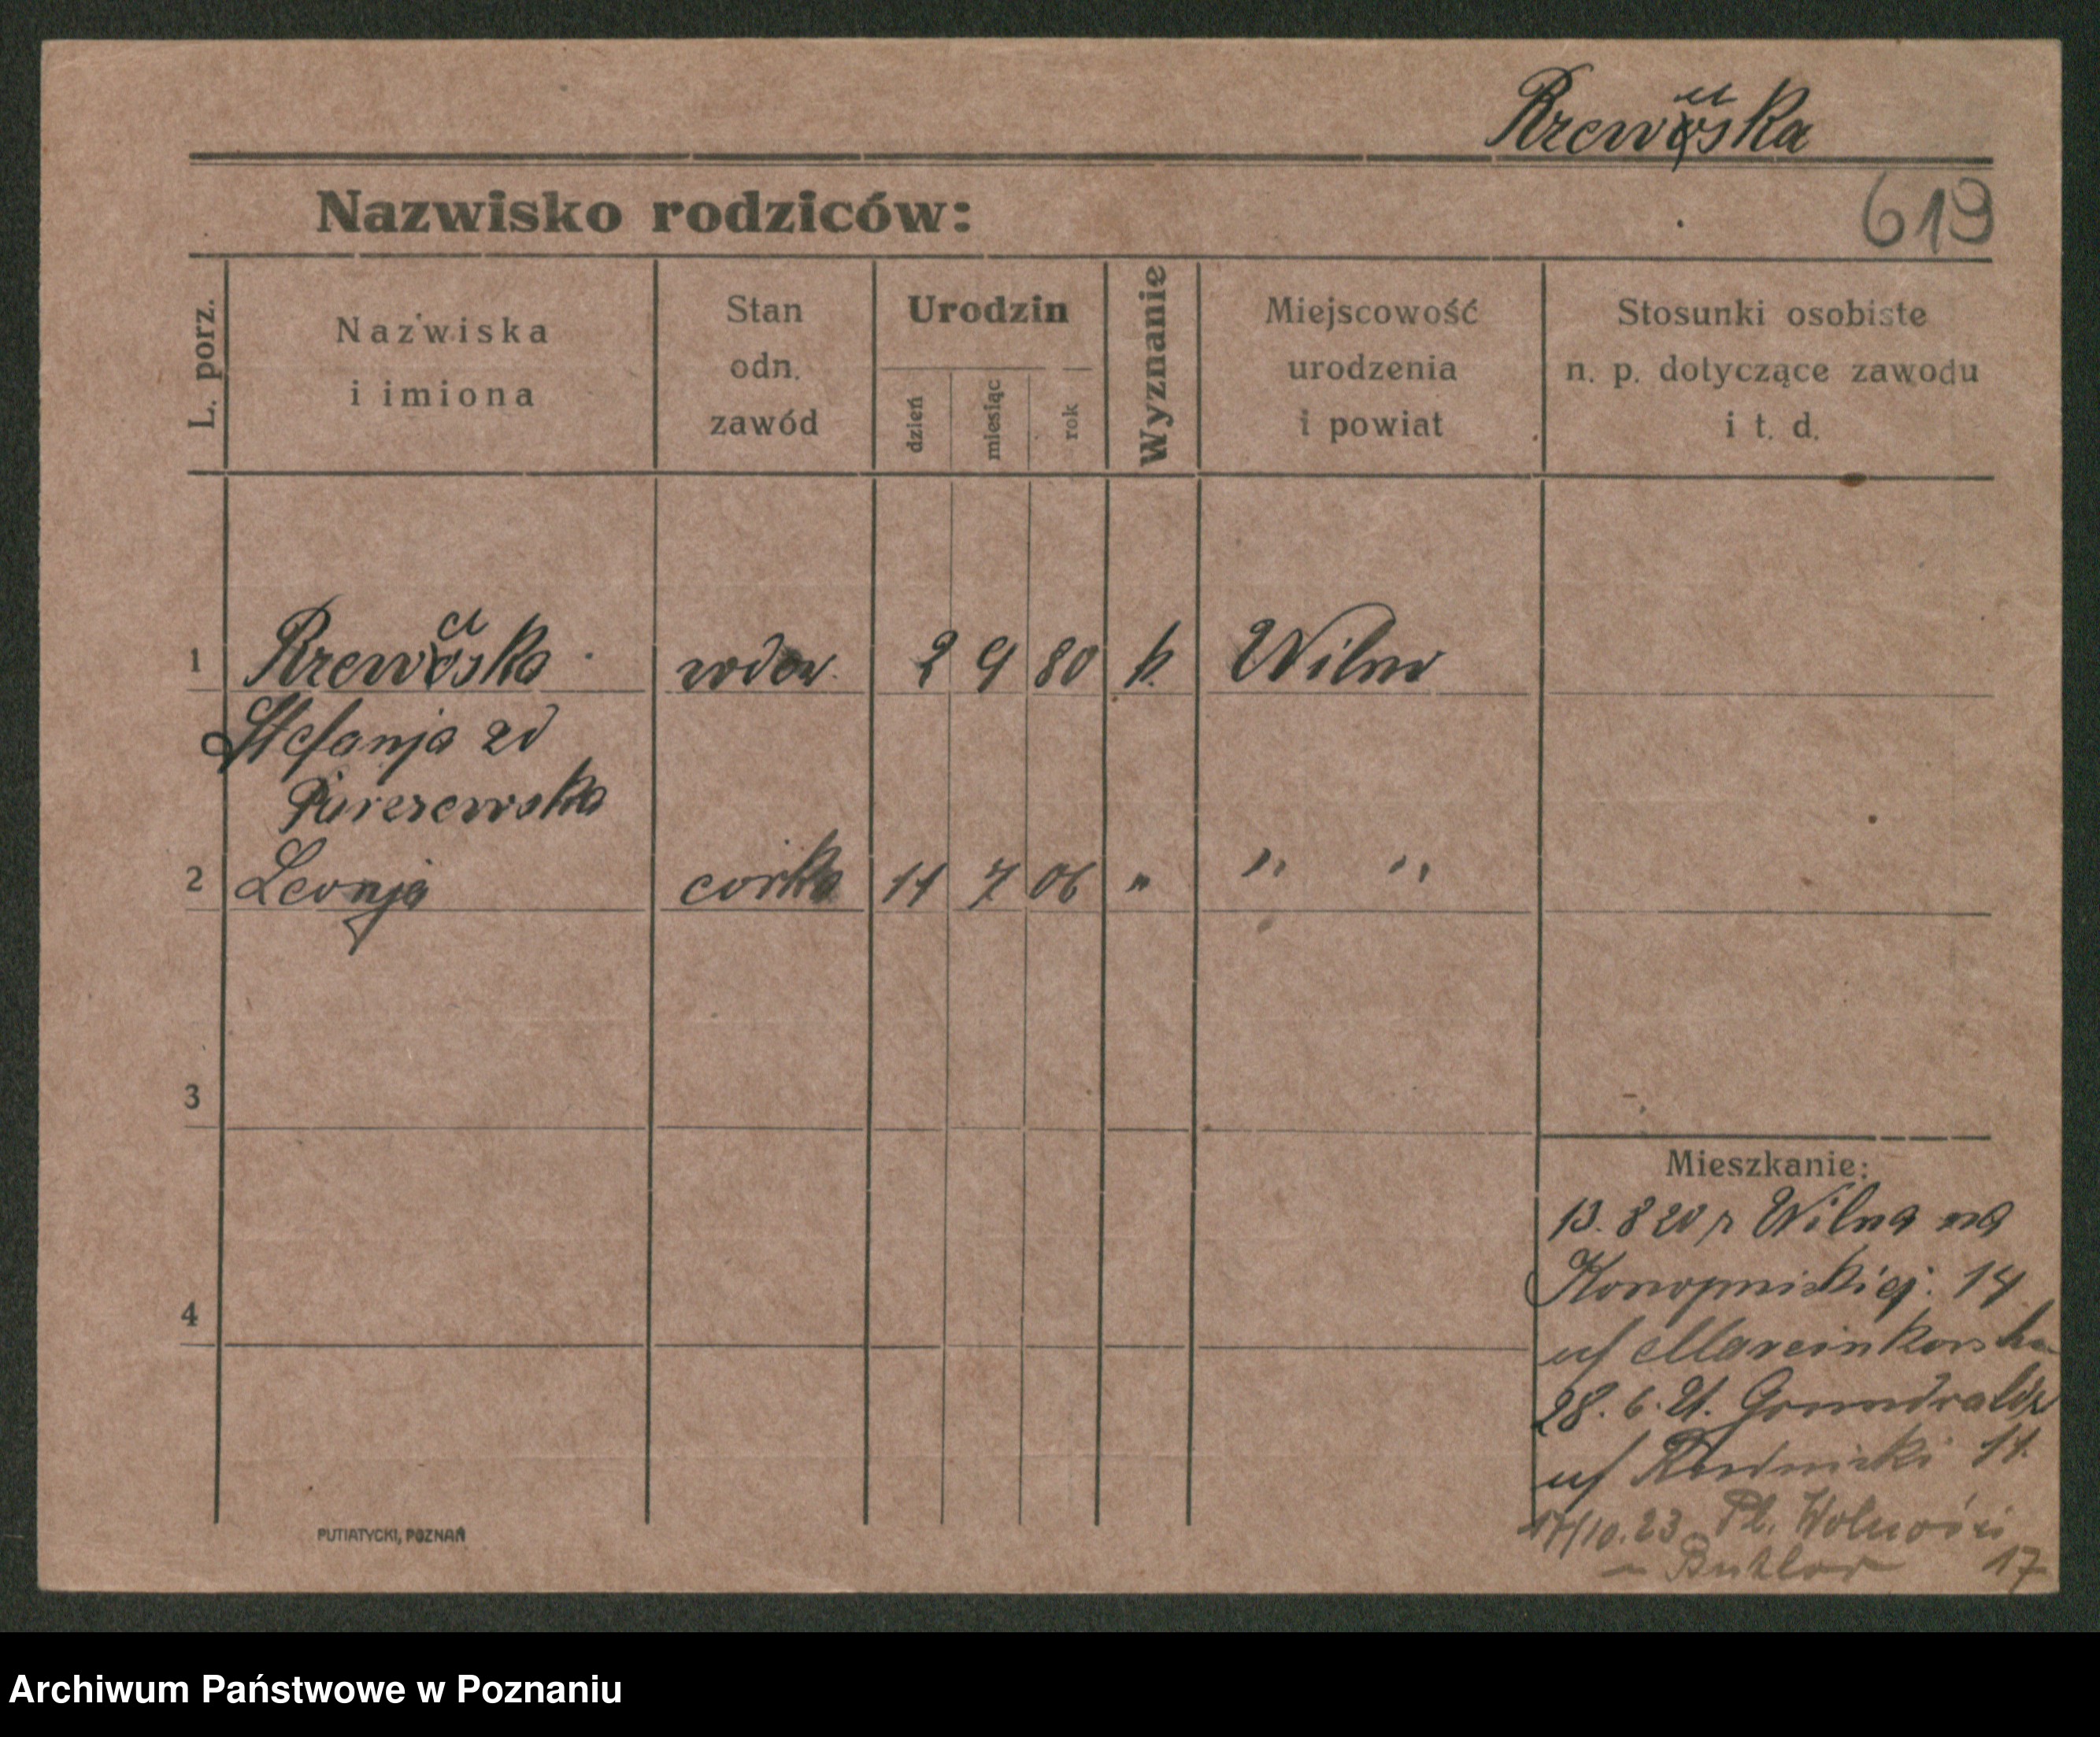 Rzewuska
Nazwisko rodziców:
619
L. porz.
Nazwiska
i imiona
Stan
odn.
zawód
Urodzin
dzień
miesiąc
rok
Wyznanie
Miejscowość
urodzenia
i powiat
Stosunki osobiste
n. p. dotyczące zawodu
i t. d.
1 Rzewuska wdow. 2 9 80 k. Wilno
Stefanja zd
2 Leonja córka 11 7 06 " " "
3
4
Mieszkanie:
13. 8 20 z Wilna na
Konopnickiej. 14
u/ Marcinkowska
28. 6. 21. Grunwaldz
u/ Rudnicki 11.
17/10. 23 Pl. Wolności
17
PUTIATYCKI, POZNAŃ
Archiwum Państwowe w Poznaniu